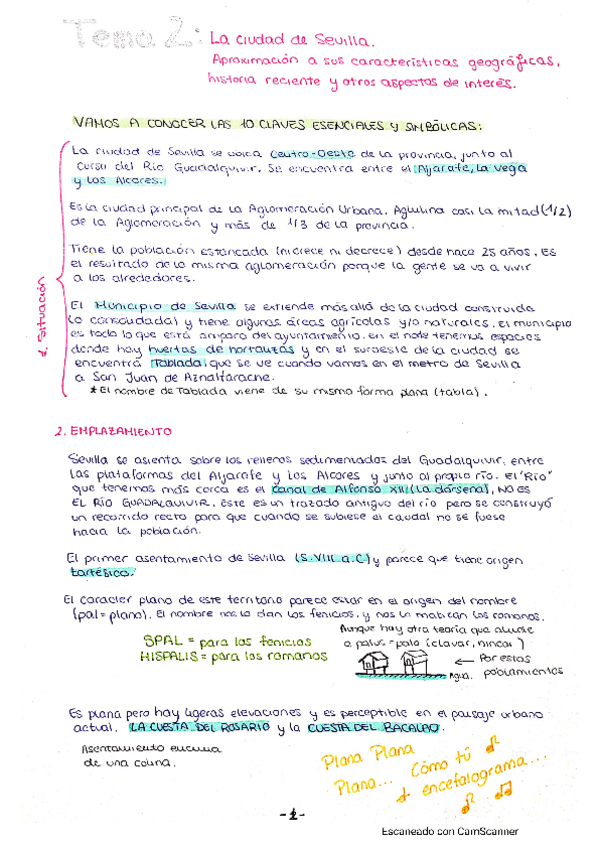 Tema 2: La ciudad de Sevilla.
Aproximación a sus características geográficas,
historia reciente y otros aspectos de interés.
VAMOS A CONOCER LAS 10 CLAVES ESENCIALES Y SIMBÓLICAS:
1. Situación
La ciudad de Sevilla se ubica Centro-Oeste de la provincia, junto al
curso del Río Guadalquivir. Se encuentra entre el Aljarafe, La vega
y los Alcores.
Es la ciudad principal de la Aglomeración Urbana. Aglutina casi la mitad (1/2)
de la Aglomeración y más de 1/3 de la provincia.
Tiene la población estancada (ni crece ni decrece) desde hace 25 años. Es
el resultado de la misma aglomeración porque la gente se va a vivir
a los alrededores.
El Municipio de Sevilla se extiende más allá de la ciudad construida
(o consolidada) y tiene algunas áreas agrícolas y/o naturales. El municipio
es todo lo que está amparo del ayuntamiento. en el norte tenemos espacios
donde hay huertas de hortalizas y en el suroeste de la ciudad se
encuentra Tablada, que se ve cuando vamos en el metro de Sevilla
a San Juan de Aznalfarache.
*El nombre de Tablada viene de su misma forma plana (tabla).
2. EMPLAZAMIENTO
Sevilla se asienta sobre los rellenos sedimentados del Guadalquivir, entre
las plataformas del Aljarafe y los Alcores y junto al propio río. El "Río"
que tenemos más cerca es el canal de Alfonso XII (La dársena), NO ES
EL RÍO GUADALQUIVIR. Este es un trazado antiguo del río pero se construyó
un recorrido recto para que cuando se subiese el caudal no se fuese
hacia la población.
El primer asentamiento de Sevilla (S.VIII a.C) y parece que tiene origen
tartésico.
El caracter plano de este territorio parece estar en el origen del nombre
(pal = plano). El nombre nos lo dan los fenicios, y nos lo matizan los romanos.
SPAL = para los fenicios
HISPALIS = para los romanos
Aunque hay otra teoría que alude
a palus = palo (clavar, hincar)
← Por estos
poblamientos
Agua.
Es plana pero hay ligeras elevaciones y es perceptible en el paisaje urbano
actual. LA CUESTA DEL ROSARIO y la CUESTA DEL BACALAO.
Asentamiento encima
de una colina.
Plana Plana
Plana... Cómo tú
encefalograma...
-1-
Escaneado con CamScanner